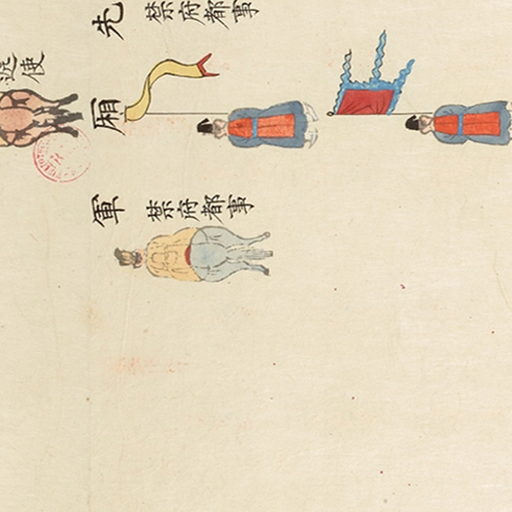 使
先廂軍
禁府都事
禁府都事